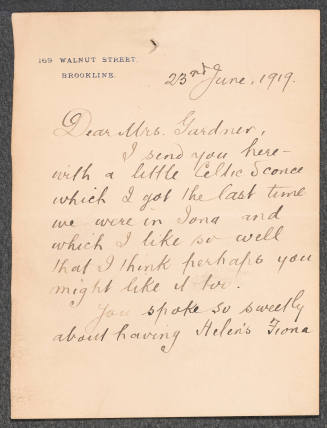 169 WALNUT STREET.
BROOKLINE.
23nd June, 1919.
Dear Mrs. Gardner,
I send you here-
with a little Celtic Sconce
which I got the last time
we were in Iona and
which I like so well
that I think perhaps you
might like it too.
You spoke so sweetly
about having Helen's Fiona